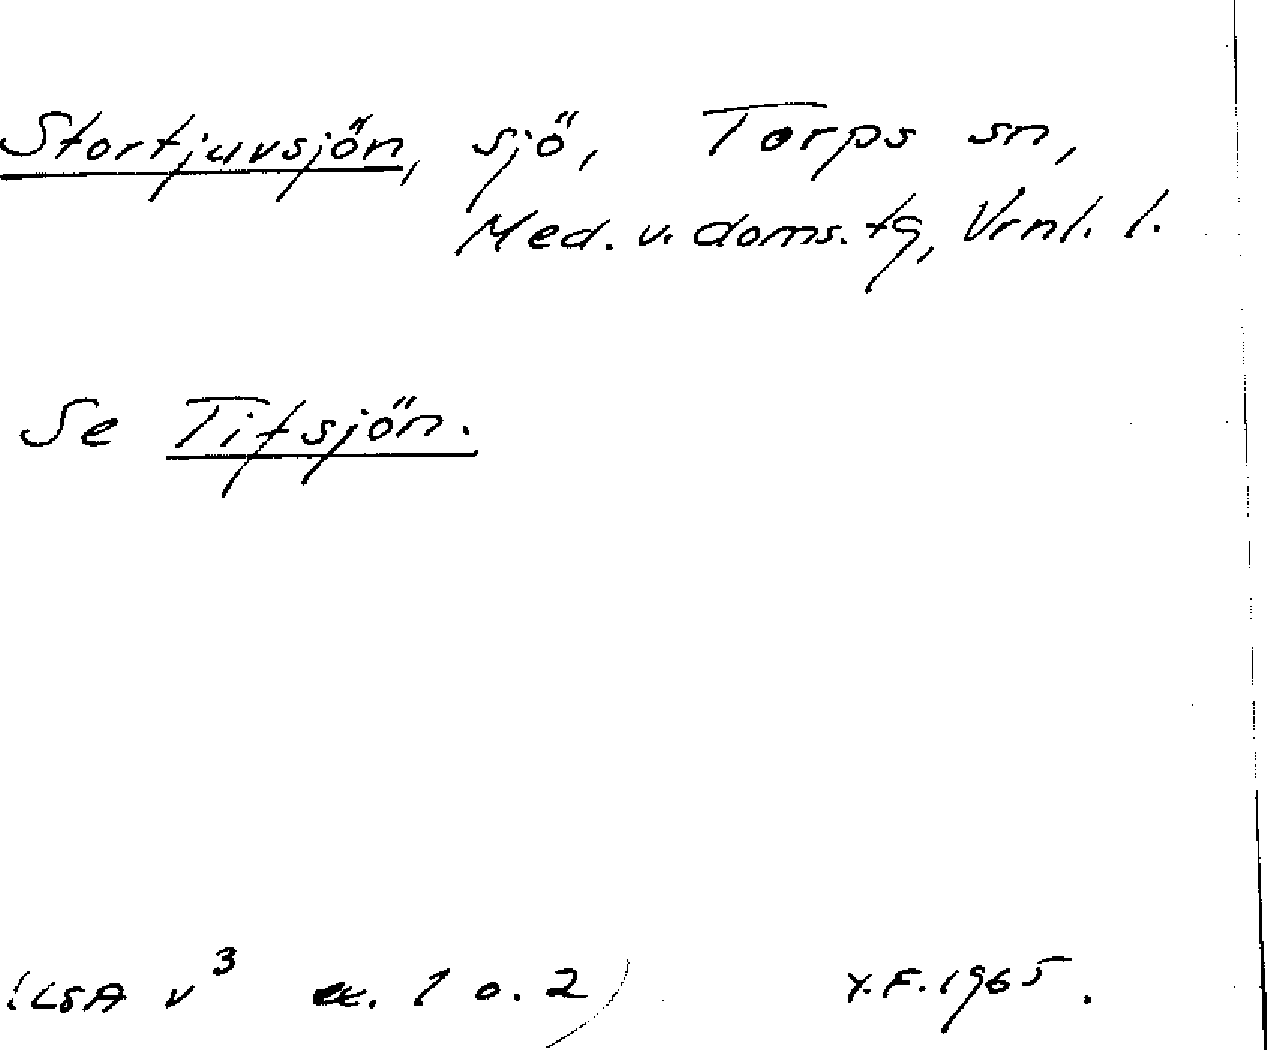 Stortjuvsjön, sjö, Torps sn,
Med. v. doms. tg, Vrnl. l.
Se Tifsjön.
(LSA v³ ex. 1 o. 2) Y.F. 1965.